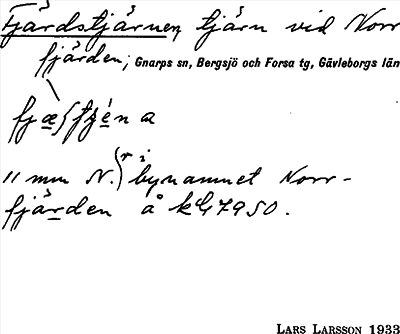 Fjärdstjärnen, tjärn vid Norr
fjärden; Gnarps sn, Bergsjö och Forsa tg, Gävleborgs län
11 mm N. (r i) bynamnet Norr-
fjärden å kbl 7950.
LARS LARSSON 1933